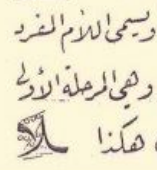 ويسمى اللام المفرد
وهي المرحلة الأولى
هكذا